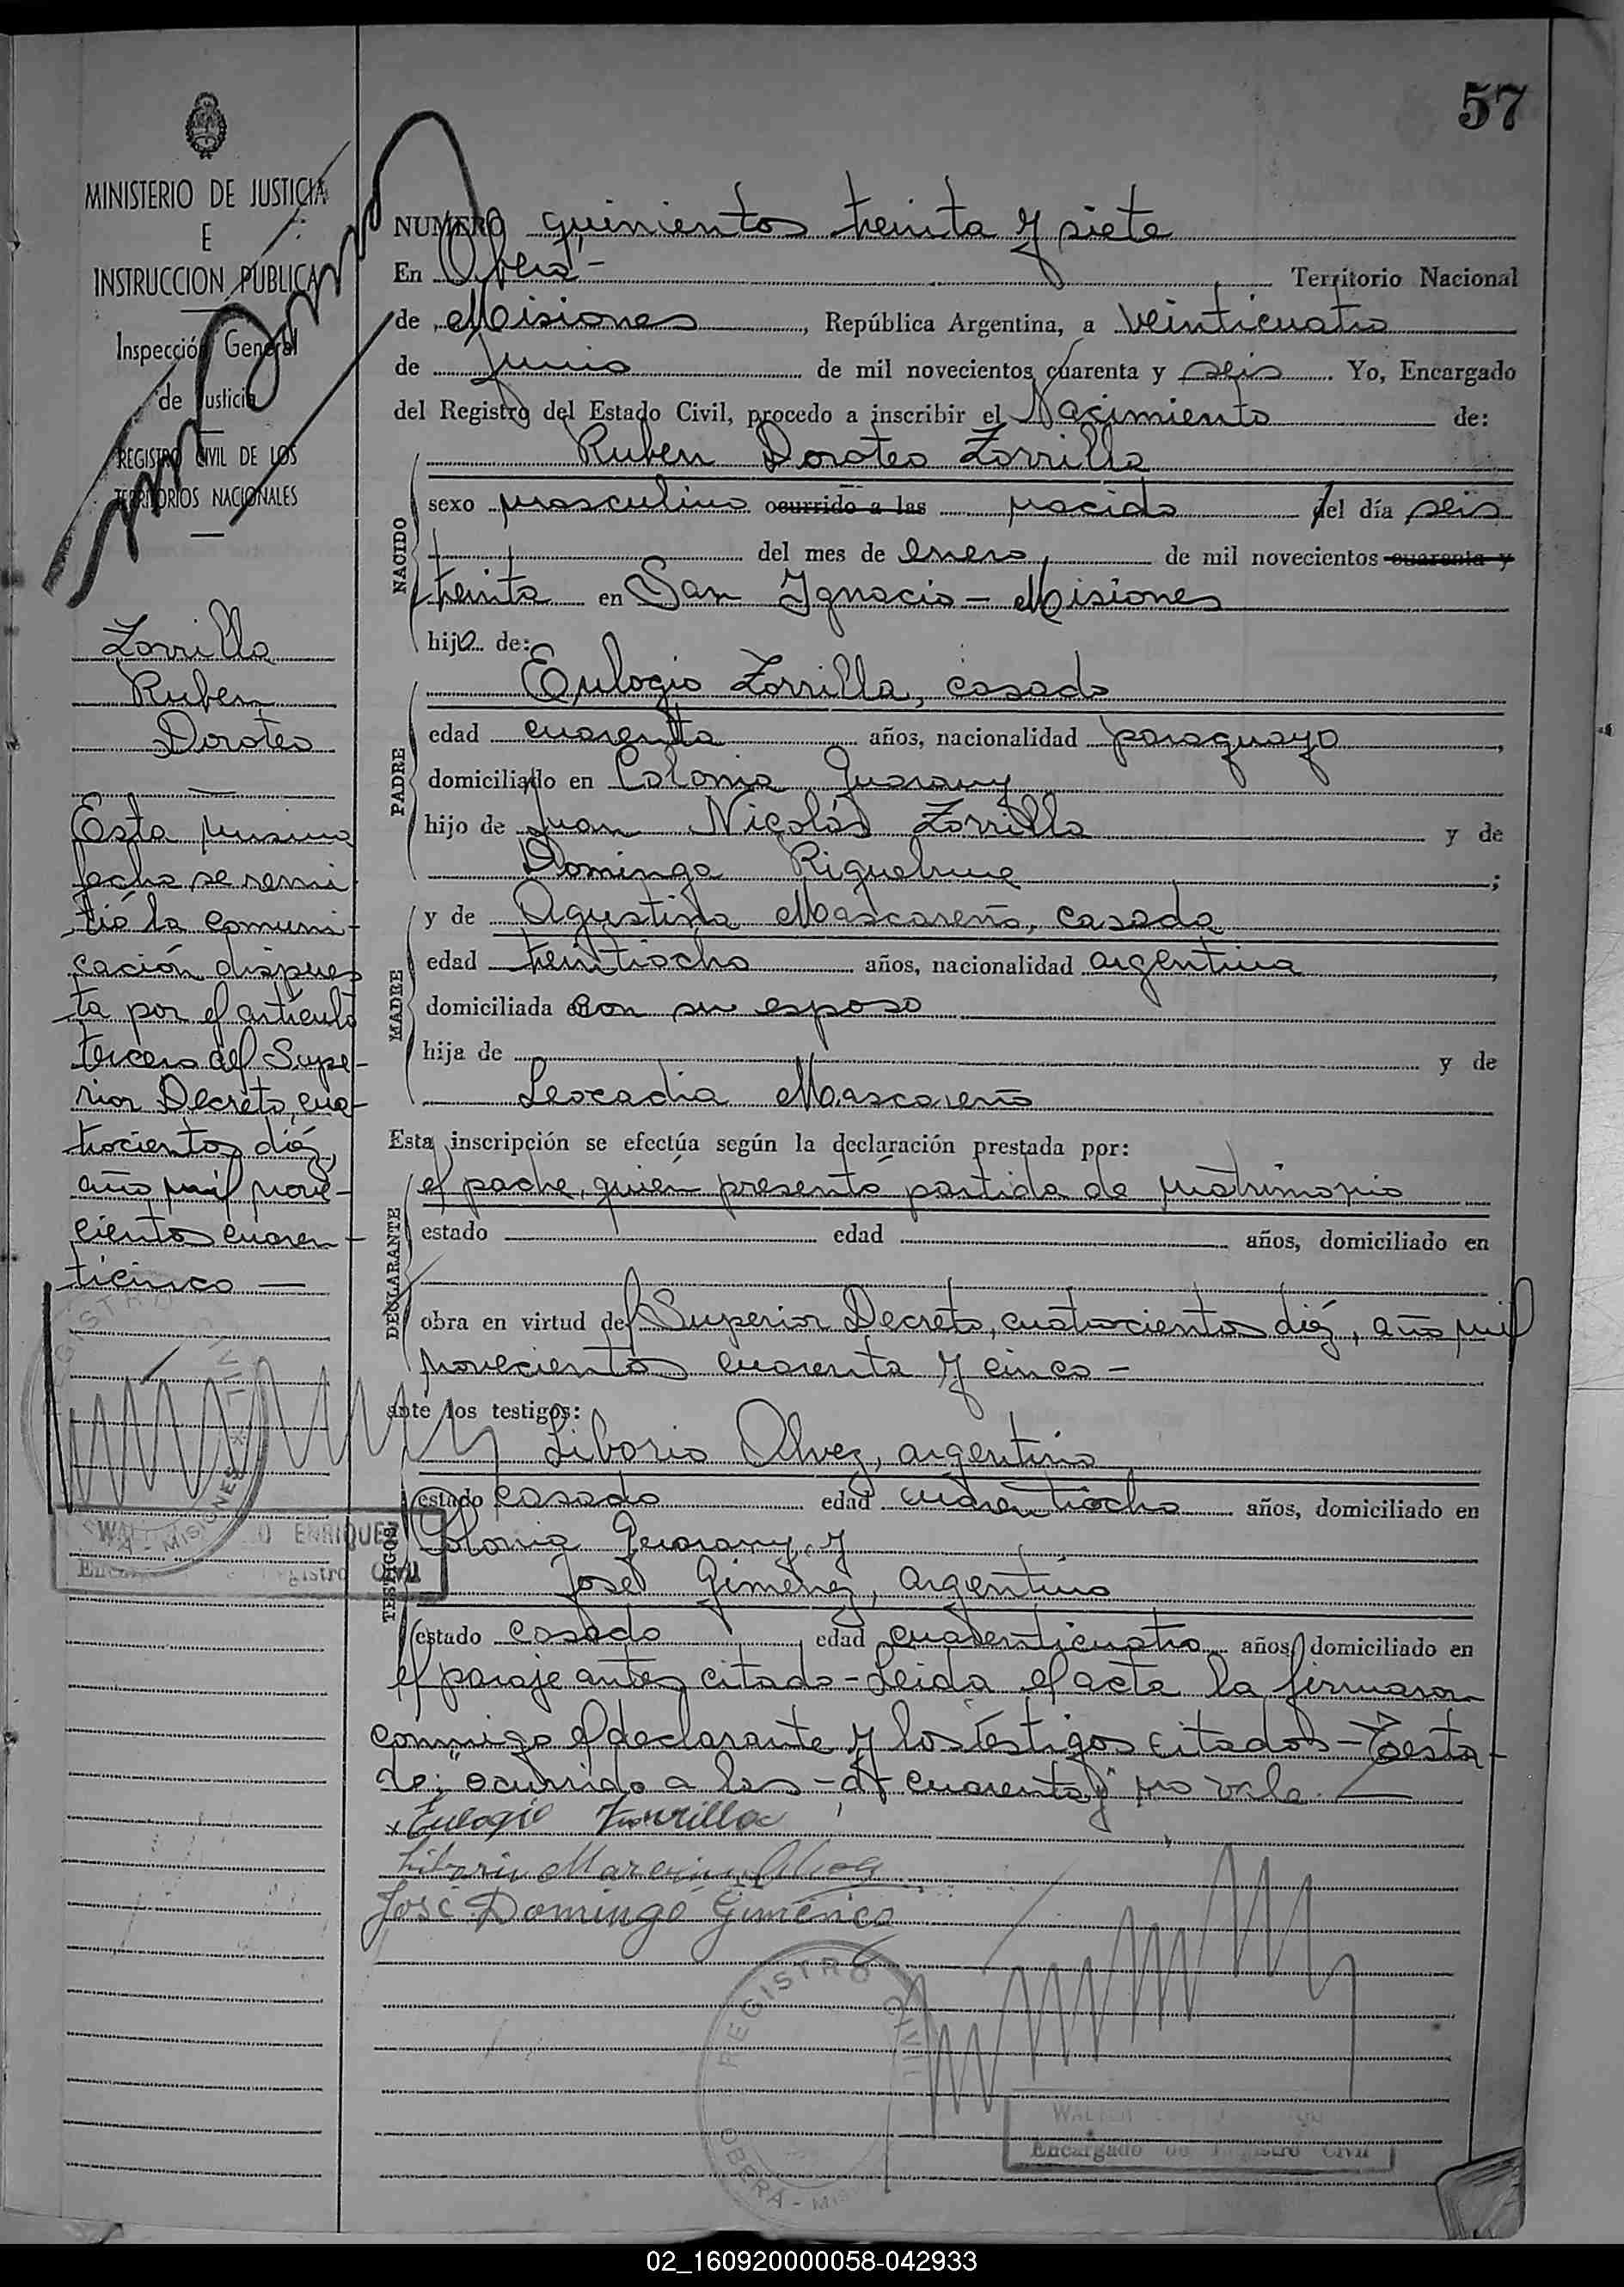 57
MINISTERIO DE JUSTICIA
E
INSTRUCCION PUBLICA
Inspección General
de Justicia
REGISTRO CIVIL DE LOS
TERRITORIOS NACIONALES
Zorrilla
Ruben
Doroteo
Esta misma
fecha se remi
tió la comuni-
cación dispues
ta por el artículo
tercero del Supe-
rior Decreto, cua-
trocientos diéz,
año mil nove-
cientos cuaren-
ticinco —
REGISTRO CIVIL
MISIONES
ENRIQUEZ
Registro Civil
NUMERO quinientos treinta y siete
En Oberá - Territorio Nacional
de Misiones, República Argentina, a veinticuatro
de junio de mil novecientos cuarenta y seis. Yo, Encargado
del Registro del Estado Civil, procedo a inscribir el Nacimiento de:
NACIDO
Ruben Doroteo Zorrilla
sexo masculino ocurrido a las nacido el día seis
del mes de enero, de mil novecientos cuarenta y
treinta en San Ignacio - Misiones
hijo de:
PADRE
Eulogio Zorrilla, casado
edad cuarenta años, nacionalidad paraguayo,
domiciliado en Colonia Guarany
hijo de Juan Nicolás Zorrilla y de
Dominga Riquelme;
MADRE
y de Agustina Mascareño, casada
edad treintiocho años, nacionalidad argentina,
domiciliada con su esposo
hija de y de
Leocadia Mascareño
Esta inscripción se efectúa según la declaración prestada por:
DECLARANTE
el padre, quién presentó partida de matrimonio
estado edad años, domiciliado en
obra en virtud del Superior Decreto, cuatrocientos diéz, año mil
novecientos cuarenta y cinco -
ante los testigos:
TESTIGOS
Liborio Alvez, argentino
estado casado edad cuarentiocho años, domiciliado en
Colonia Guarany, y
José Giménez, argentino
estado casado edad cuarenticuatro años, domiciliado en
el paraje antes citado - Leida el acta la firmaron
conmigo el declarante y los testigos citados - Testa-
do: "ocurrido a las - d - cuarenta y" no vale.
Eulogio Zorrilla
José Domingo Gimenez
REGISTRO CIVIL
OBERA - MISIONES
Encargado de Registro Civil
02_160920000058-042933